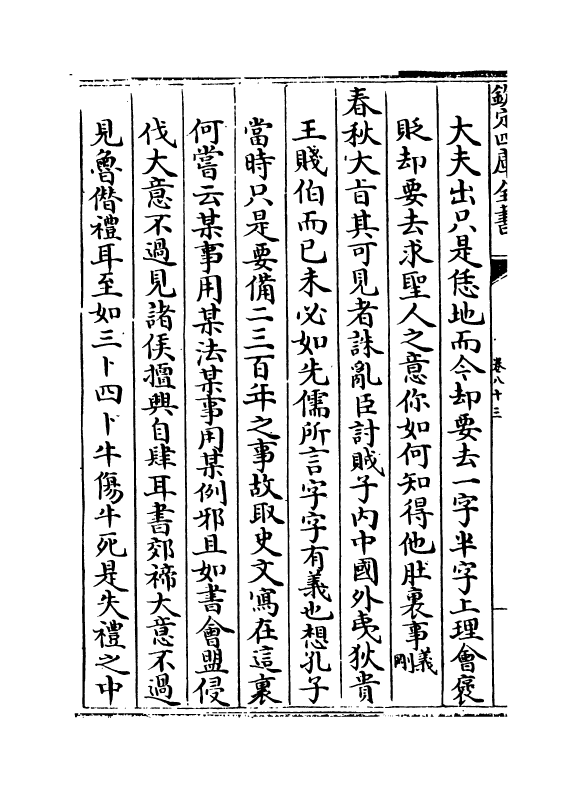 欽定四庫全書
卷八十三
大夫出只是恁地而今却要去一字半字上理會褒
貶却要去求聖人之意你如何知得他肚裏事義剛
春秋大旨其可見者誅亂臣討賊子內中國外夷狄貴
王賤伯而已未必如先儒所言字字有義也想孔子
當時只是要備二三百年之事故取史文寫在這裏
何嘗云某事用某法某事用某例邪且如書會盟侵
伐大意不過見諸侯擅興自肆耳書郊禘大意不過
見魯僭禮耳至如三卜四卜牛傷牛死是失禮之中